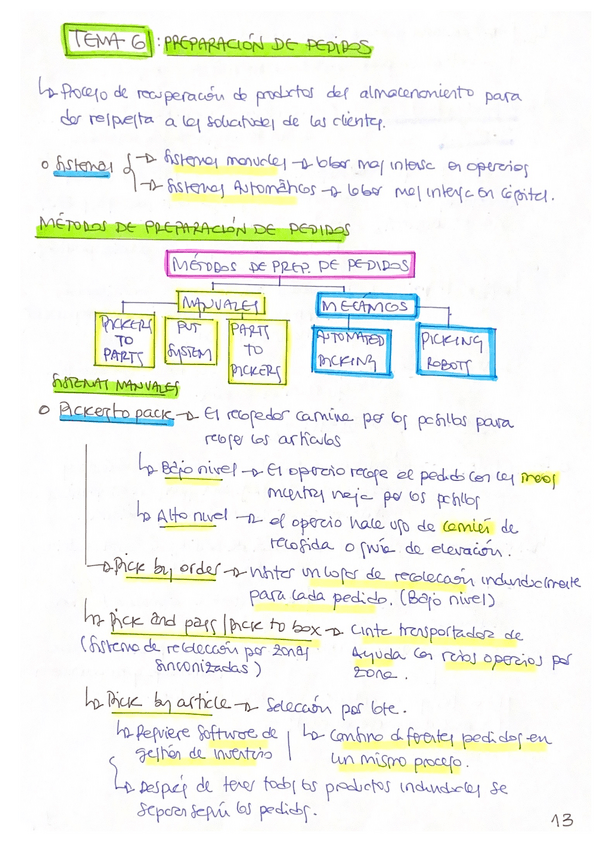 TEMA 6: PREPARACIÓN DE PEDIDOS
↳ Proceso de recuperación de productos del almacenamiento para
dar respuesta a las solicitudes de los clientes.
o Sistemas → Sistemas manuales → labor mas intensc en operarios
→ Sistemas Automáticos → labor mas intensc en capital.
MÉTODOS DE PREPARACIÓN DE PEDIDOS
MÉTODOS DE PREP. DE PEDIDOS
MANUALES MECÁNICOS
PICKERS TO PARTS
PUT SYSTEM
PARTS TO PICKERS
AUTOMATED PICKING
PICKING ROBOTS
SISTEMAS MANUALES
o Picker to pack → El recogedor camina por los pasillos para
recoger los artículos
↳ Bajo nivel → El operario recoge el pedido con las manos
mientras viaja por los pasillos
↳ Alto nivel → el operario hace uso de camión de
recogida o grúa de elevación.
→ Pick by order → Visitar un lugar de recolección individualmente
para cada pedido. (Bajo nivel)
↳ Pick and pass / Pick to box → Cinta transportadora de
(Sistema de recolección por zonas Ayuda con varios operarios por
sincronizadas) zona.
↳ Pick by article → Selección por lote.
↳ Requiere Software de ↳ Combina diferentes pedidos en
gestión de inventario un mismo proceso.
↳ Después de tener todos los productos individuales se
separan según los pedidos.
13